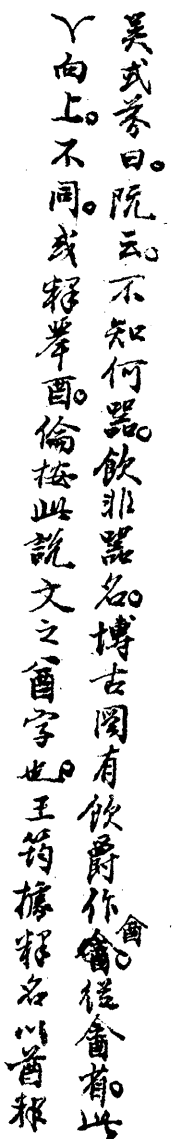 吳式芬曰。阮云。不知何器。飲非器名。博古圖有飲爵作酓。從酓有。此
丫向上。不同。或釋舉酉。倫按此說文之酋字也。王筠據釋名以酋釋